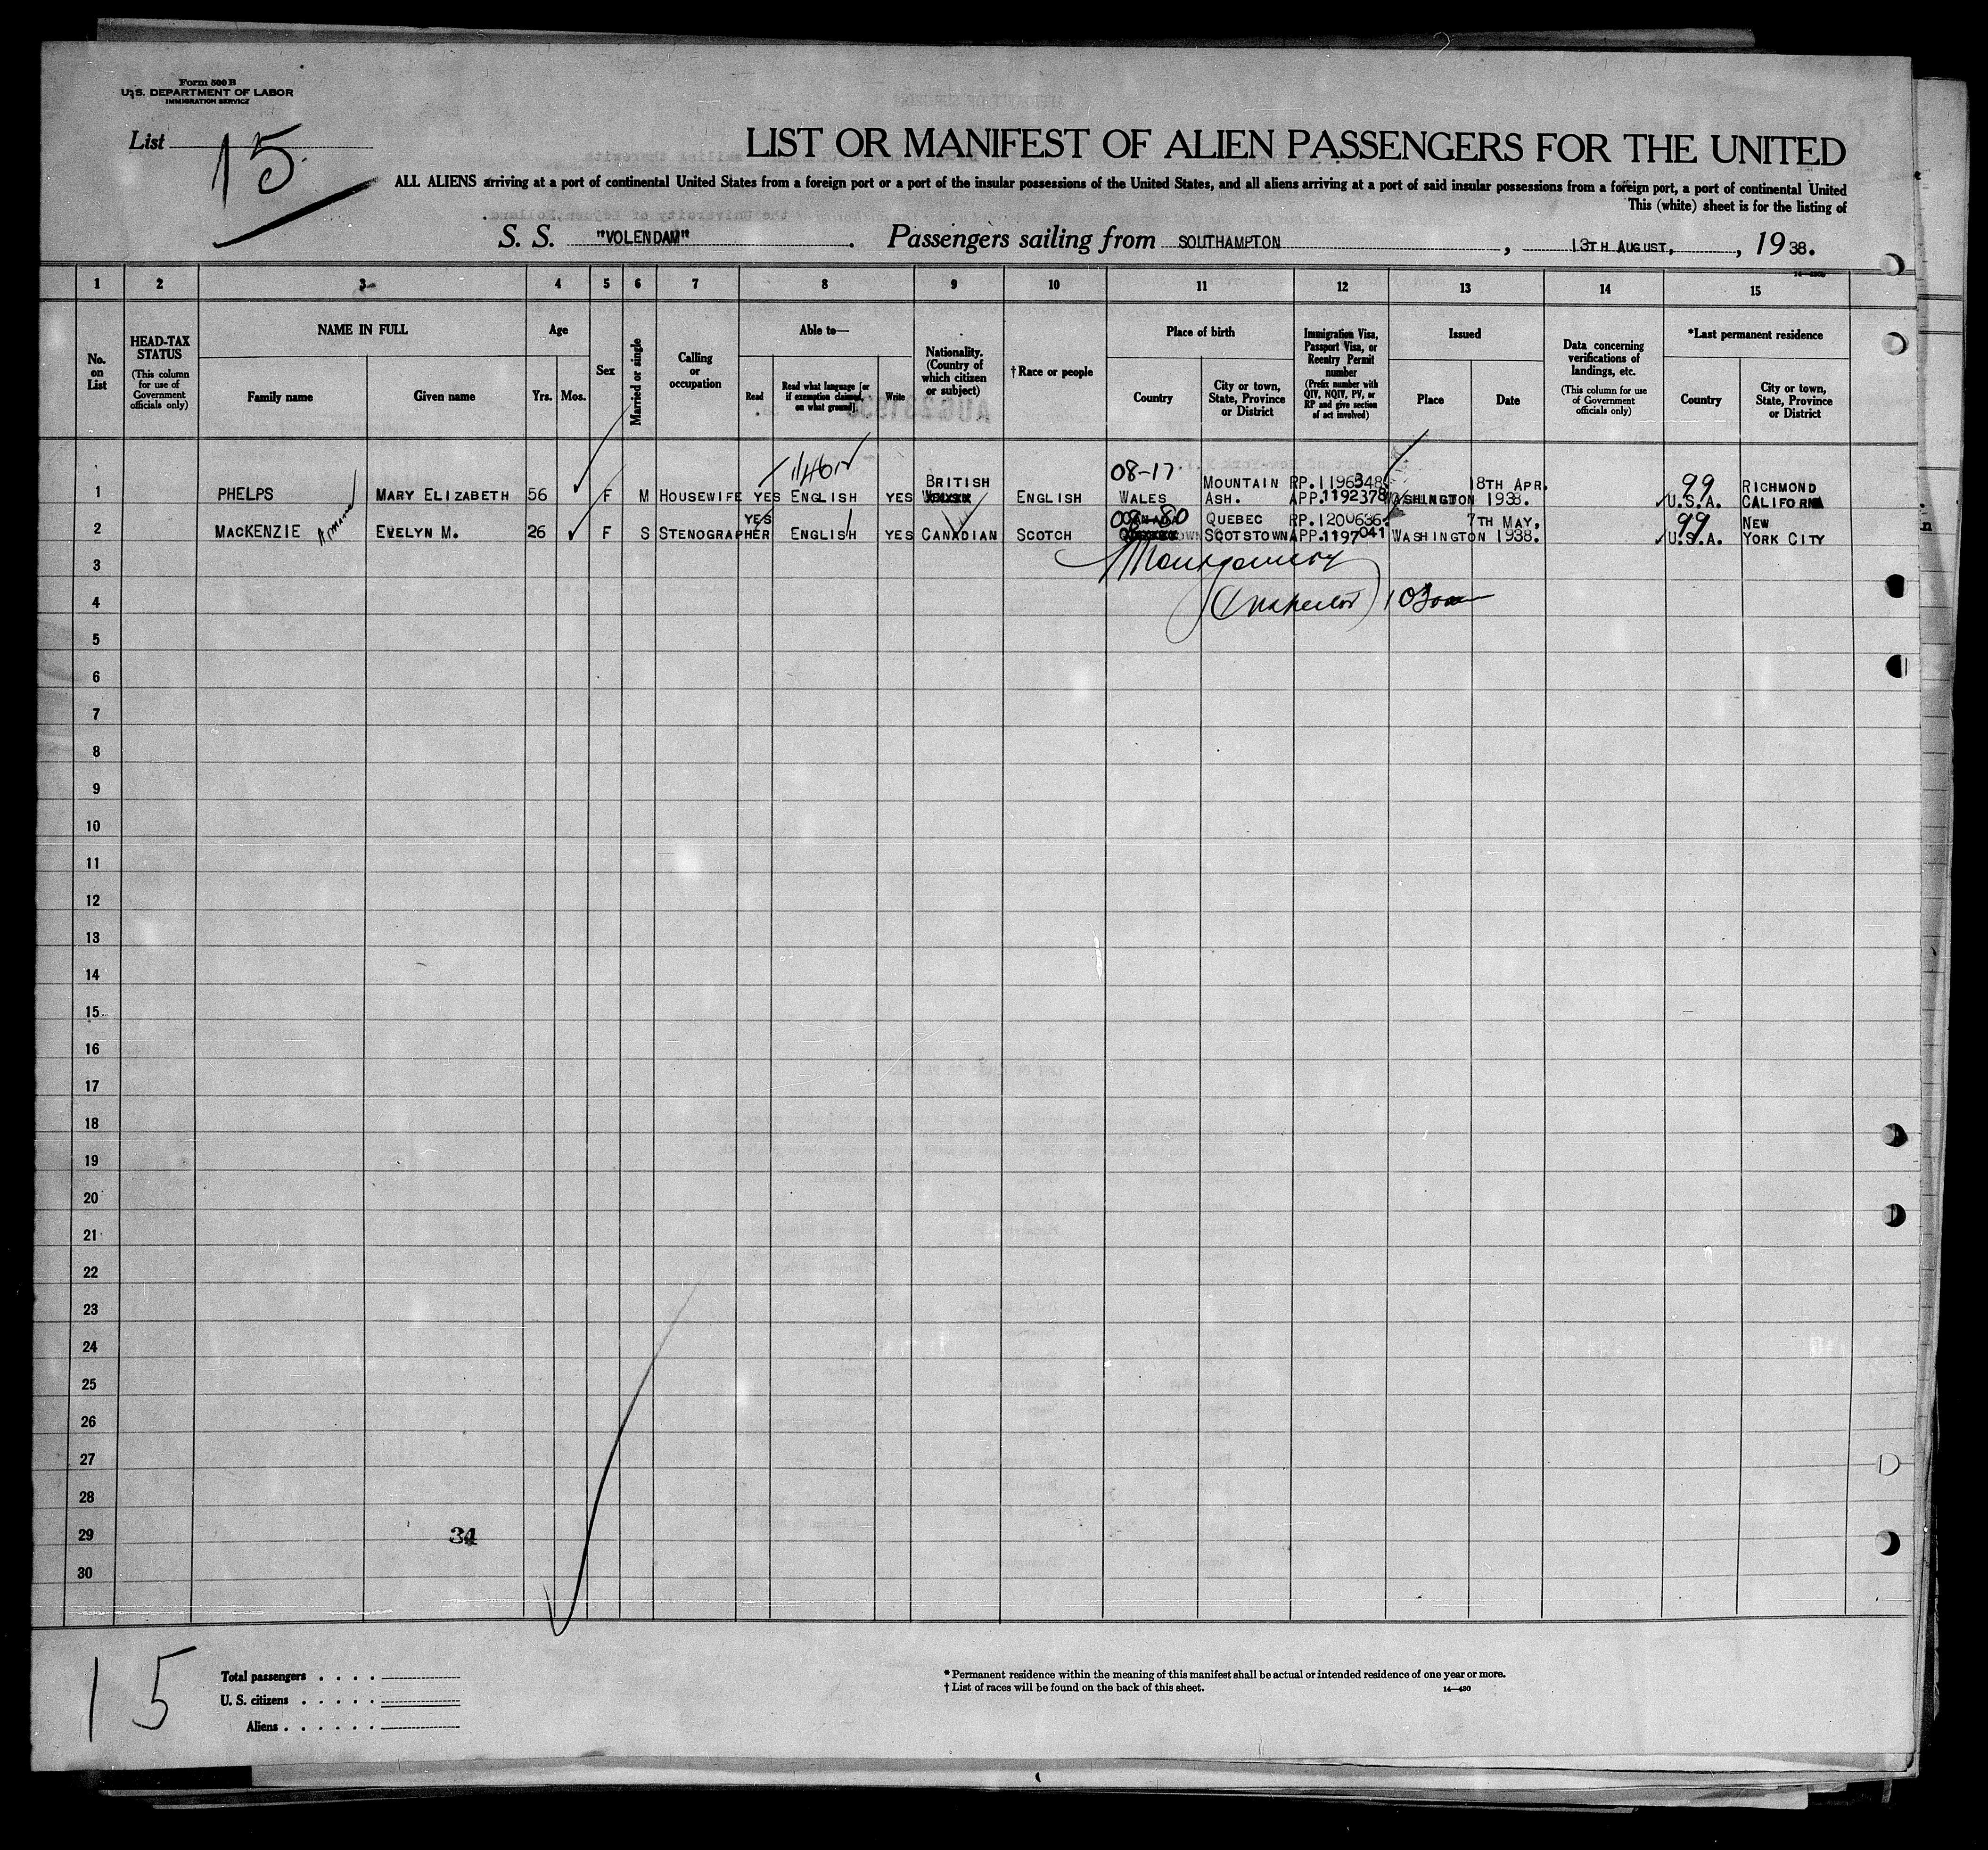 Form 500 B
U. S. DEPARTMENT OF LABOR
IMMIGRATION SERVICE
List 15
LIST OR MANIFEST OF ALIEN PASSENGERS FOR THE UNITED
ALL ALIENS arriving at a port of continental United States from a foreign port or a port of the insular possessions of the United States, and all aliens arriving at a port of said insular possessions from a foreign port, a port of continental United
This (white) sheet is for the listing of
S. S. "VOLENDAM". Passengers sailing from SOUTHAMPTON, 13TH AUGUST, , 1938.
1 2 3 4 5 6 7 8 9 10 11 12 13 14 15
No. on List
HEAD-TAX STATUS
(This column for use of Government officials only)
NAME IN FULL
Family name
Given name
Age
Yrs.
Mos.
Sex
Married or single
Calling or occupation
Able to—
Read
Read what language [or if exemption claimed, on what ground].
Write
Nationality. (Country of which citizen or subject)
†Race or people
Place of birth
Country
City or town, State, Province or District
Immigration Visa, Passport Visa, or Reentry Permit number
(Prefix number with QIV, NQIV, PV, or RP and give section of act involved)
Issued
Place
Date
Data concerning verifications of landings, etc.
(This column for use of Government officials only)
*Last permanent residence
Country
City or town, State, Province or District
08-17 99
BRITISH MOUNTAIN RP.1196348 18TH APR. RICHMOND
1 PHELPS MARY ELIZABETH 56 F M HOUSEWIFE YES ENGLISH YES ENGLISH WALES ASH. APP.1192378 WASHINGTON 1938. U.S.A. CALIFORNIA
YES QUEBEC RP.1200636 7TH MAY, 99 NEW
2 MACKENZIE EVELYN M. 26 F S STENOGRAPHER ENGLISH YES CANADIAN SCOTCH SCOTSTOWN APP.1197041 WASHINGTON 1938. U.S.A. YORK CITY
3 Montgomery
4 (Inspector)
5
6
7
8
9
10
11
12
13
14
15
16
17
18
19
20
21
22
23
24
25
26
27
28
29 34
30
15
Total passengers . . . .
U. S. citizens . . . . .
Aliens . . . . . .
* Permanent residence within the meaning of this manifest shall be actual or intended residence of one year or more.
† List of races will be found on the back of this sheet.
14—430